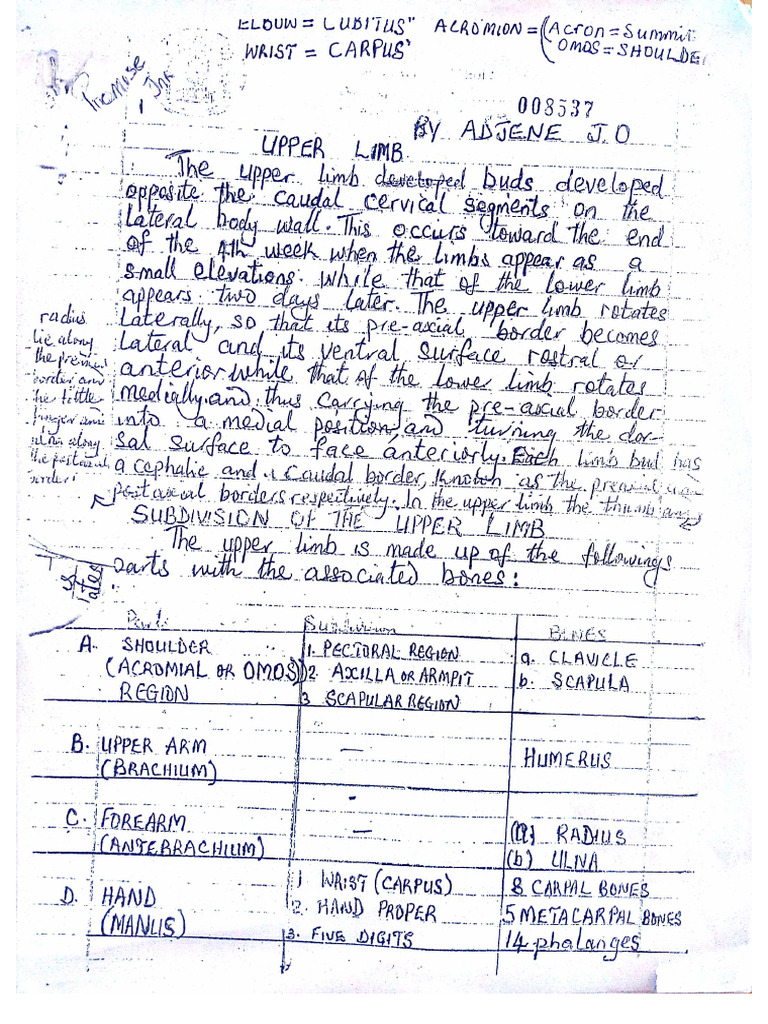 ELBOW = CUBITUS" ACROMION = (Acron = Summit
WRIST = CARPUS' OMOS = SHOULDER
Promise
Ink
008537
By ADJENE J.O
UPPER LIMB
The upper limb developed buds developed
opposite the caudal cervical segments on the
lateral body wall. This occurs toward the end
of the 4th week when the limbs appear as a
small elevations. While that of the lower limb
appears two days later. The upper limb rotates
Laterally, so that its pre-axial border becomes
Lateral and its ventral surface rostral or
anterior while that of the lower limb rotates
medially and thus carrying the pre-axial border
into a medial position and turning the dor-
sal surface to face anteriorly. Each limb bud has
a cephalic and caudal border, known as the preaxial and
postaxial borders respectively. In the upper limb the thumb and
radius
lie along
the preaxial
border and
the little
finger and
ulna along
the postaxial
border
SUBDIVISION OF THE UPPER LIMB
The upper limb is made up of the followings
parts with the associated bones:
Part Subdivision BONES
A. SHOULDER 1. PECTORAL REGION a. CLAVICLE
(ACROMIAL OR OMOS) 2. AXILLA OR ARMPIT b. SCAPULA
REGION 3 SCAPULAR REGION
B. UPPER ARM — HUMERUS
(BRACHIUM)
C. FOREARM — (a) RADIUS
(ANTEBRACHIUM) (b) ULNA
D. HAND 1 WRIST (CARPUS) 8 CARPAL BONES
(MANUS) 2. HAND PROPER 5 METACARPAL BONES
3. FIVE DIGITS 14 phalanges